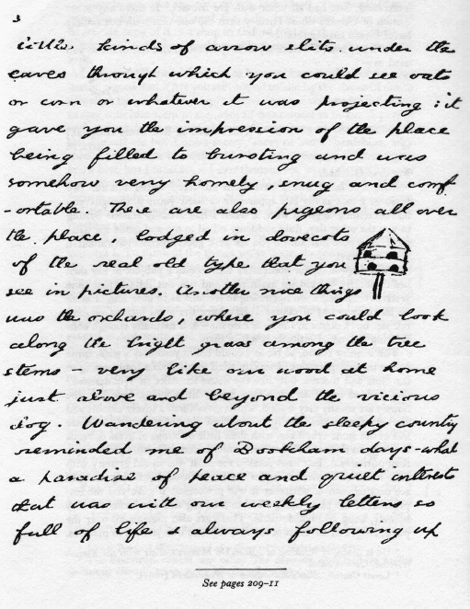 3
little kinds of arrow slits under the
eaves through which you could see oats
or corn or whatever it was projecting: it
gave you the impression of the place
being filled to bursting and was
somehow very homely, snug and comf
-ortable. There are also pigeons all over
the place, lodged in dovecots
of the real old type that you
see in pictures. Another nice thing
was the orchards, where you could look
along the bright grass among the tree
stems - very like our wood at home
just above and beyond the vicious
dog. Wandering about the sleepy country
reminded me of Bookham days - what
a paradise of peace and quiet interests
that was with our weekly letters so
full of life & always following up
See pages 209–11